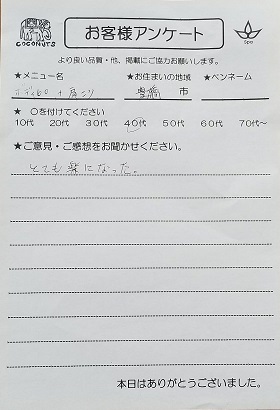 COCONUTS
お客様アンケート
Spa
より良い品質・他、掲載にご協力お願いします。
★メニュー名 ★お住まいの地域 ★ペンネーム
ボディ60 + 肩こり 豊橋 市
★ 〇を付けてください
10代 20代 30代 40代 50代 60代 70代～
★ご意見・ご感想をお聞かせください。
とても楽になった。
本日はありがとうございました。